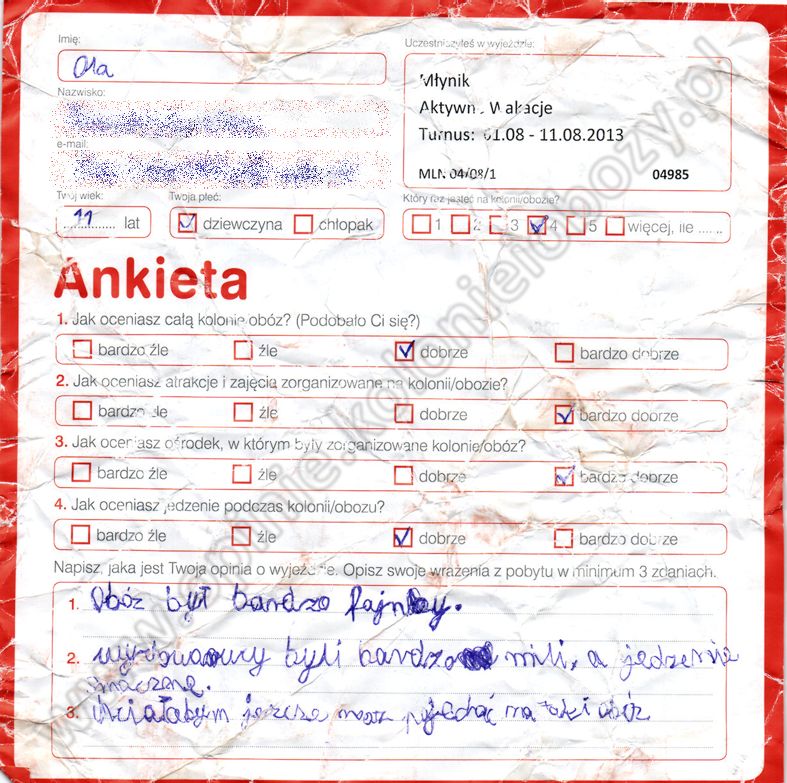 Imię:
Ola
Nazwisko:
e-mail:
Twój wiek:
11 lat
Twoja płeć:
dziewczyna chłopak
Uczestniczyłeś w wyjeździe:
Młynik
Aktywne Wakacje
Turnus: 01.08 - 11.08.2013
MLN 04/08/1 04985
Który raz jesteś na kolonii/obozie?
1 2 3 4 5 więcej, ile ......
Ankieta
1. Jak oceniasz całą kolonię/obóz? (Podobało Ci się?)
bardzo źle źle dobrze bardzo dobrze
2. Jak oceniasz atrakcje i zajęcia zorganizowane na kolonii/obozie?
bardzo źle źle dobrze bardzo dobrze
3. Jak oceniasz ośrodek, w którym były zorganizowane kolonie/obóz?
bardzo źle źle dobrze bardzo dobrze
4. Jak oceniasz jedzenie podczas kolonii/obozu?
bardzo źle źle dobrze bardzo dobrze
Napisz, jaka jest Twoja opinia o wyjeździe. Opisz swoje wrażenia z pobytu w minimum 3 zdaniach.
1. Obóz był bardzo fajny.
2. byli bardzo mili, a jedzenie
smaczne.
3. jeszcze pojechać na taki obóz
www.opinie.kolonieiobozy.pl